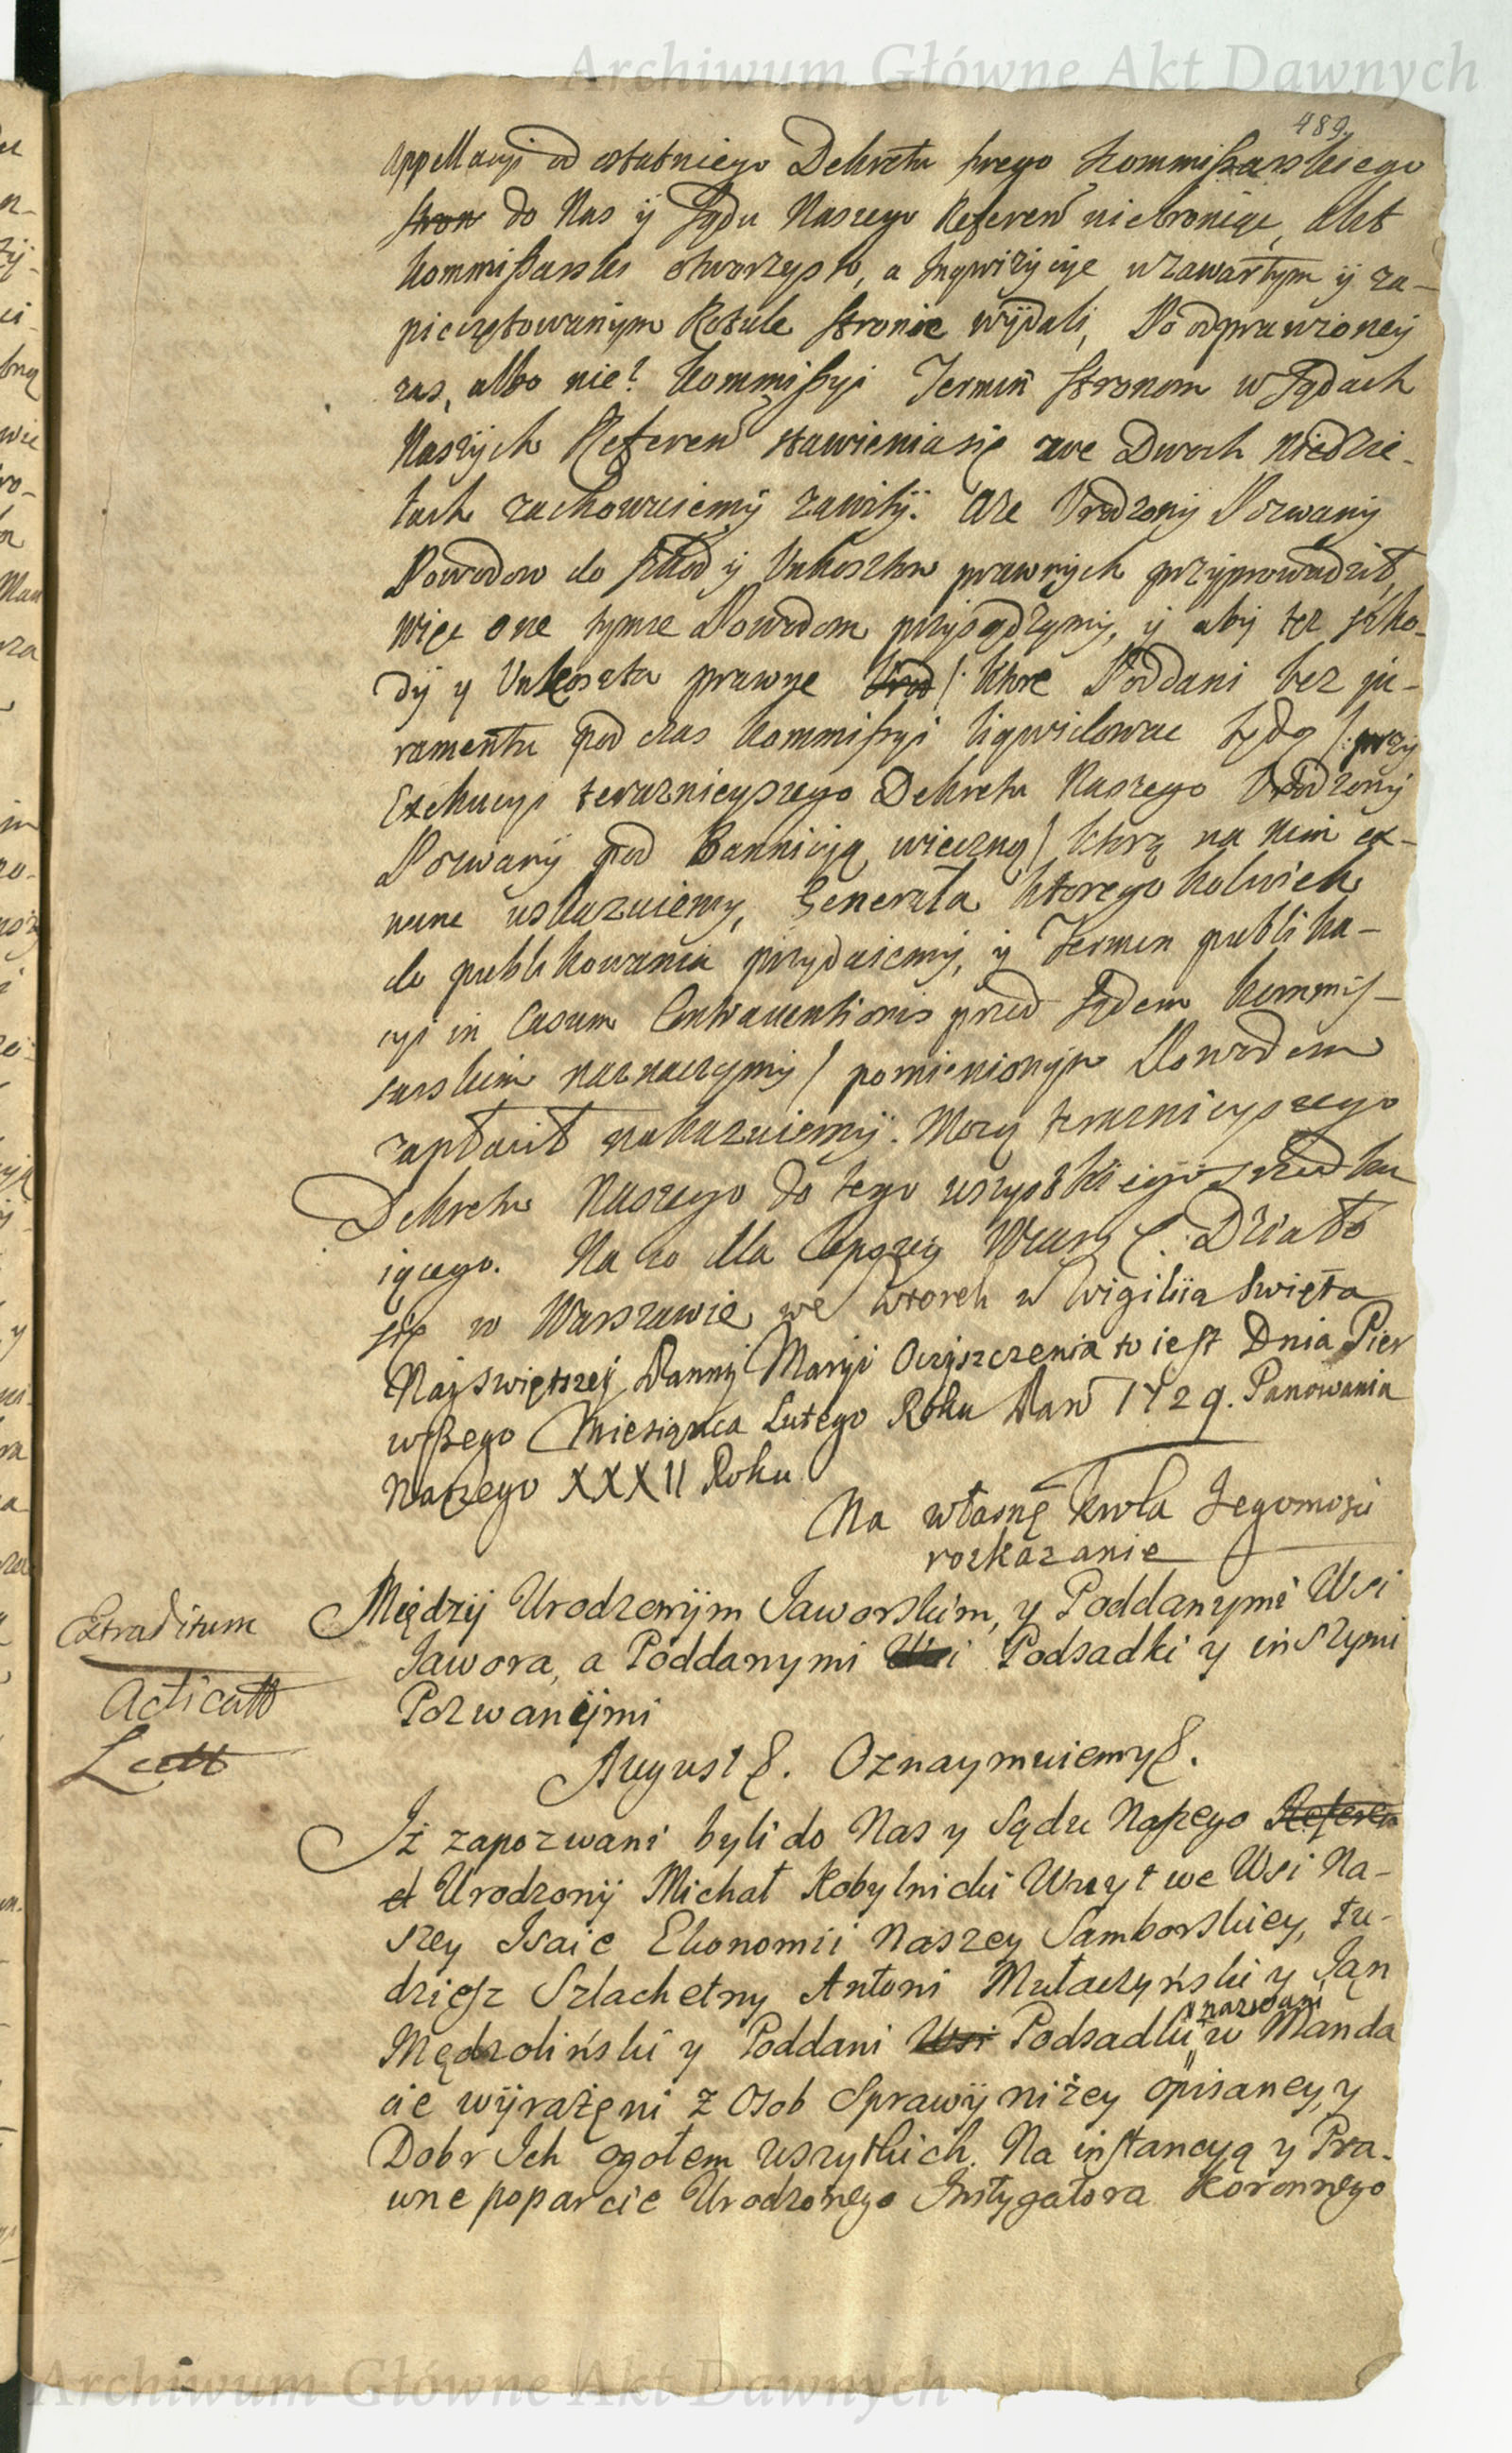 Archiwum Główne Akt Dawnych
489
Appellacyi od ostatniego Dekretu swego Kommißarskiego
stron do Nas ÿ Sądu Naszego Referen niebroniąc, Akt
Kommißarski otworzysto, a Inqwizycye w zawartym ÿ za-
pieczętowanÿm Rotule stronie wÿdali, Po odprawioneÿ
zas, albo nie? Kommißyi Termin stronom w Sądach
Naszÿch Referen stawienia się we Dwoch Niedzie-
lach zachowuiemÿ zawitÿ. Aże Urodzonÿ Pozwanÿ
Powodow do szkod ÿ Unkosztow prawnÿch przÿprowadził,
więc one tymże Powodom przysądzamy, ÿ abÿ też szko-
dÿ y Unkoszta prawne Urod /: ktore Poddani bez ju-
ramentu pod czas Kommißyi liqwidowac będą /: przÿ
Exekucyi teraznieyszego Dekretu Naszego Urodzonÿ
Pozwany pod Bannicyą wieczną / ktorą na Nim ex
nunc wskazuiemy, Generała ktoregokolwiek
do publikowania przydaiemÿ, ÿ Termin publika-
cyi in Casum Contraventionis przed Sądem Kommis-
sarskim naznaczymÿ / pomienionÿm Powodom
zapłacił nakazuiemÿ. Mocą teraznieyszego
Dekretu Naszego do tego wszystkiego
iącego. Na co dla lepszeÿ Wiary &. Działo
się w Warszawie we Wtorek w Wigiliią Swięta
Nayswiętszeÿ Pannÿ Maryi Oczÿszczenia to iest Dnia Pier
wßego Miesiąca Lutego Roku Pań 1729. Panowania
Naszego XXXII Roku
Na własnę Krola Jegomosci
rozkazanie
Extraditum
Acticatt
Lectt
Międzÿ Urodzonÿm Jaworskim, y Poddanymi Wsi
Jawora, a Poddanymi Wsi Podsadki y inszymi
Pozwanÿmi
August &. Oznaymuiemy &.
Iż zapozwani byli do Nas y Sądu Naßego Referen
et Urodzonÿ Michał Kobylnicki Wuyt we Wsi Na-
szey Isaie Ekonomii Naszey Samborskiey, tu-
dziesz Szlachetny Antoni Mułaczyński y Jan
Mędzoliński y Poddani Wsi Podsadki nazwani w Manda
cie wÿrażęni z Osob Sprawÿ niżey opisaney, y
Dobr Ich ogołem wszytkich. Na instancyą y Pra-
wne poparcie Urodzonego Instygatora Koronnego
Archiwum Główne Akt Dawnych